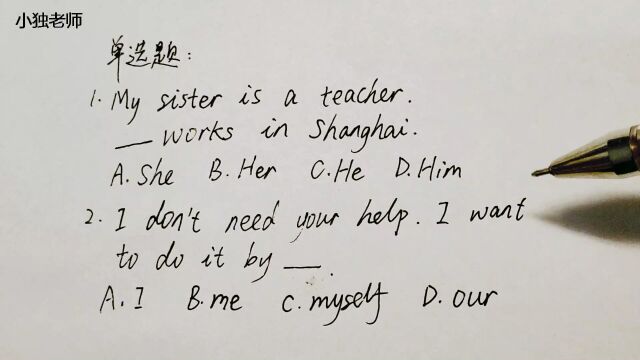 小独老师
单选题:
1. My sister is a teacher.
__ works in Shanghai.
A. She B. Her C. He D. Him
2. I don't need your help. I want
to do it by __.
A. I B. me C. myself D. our